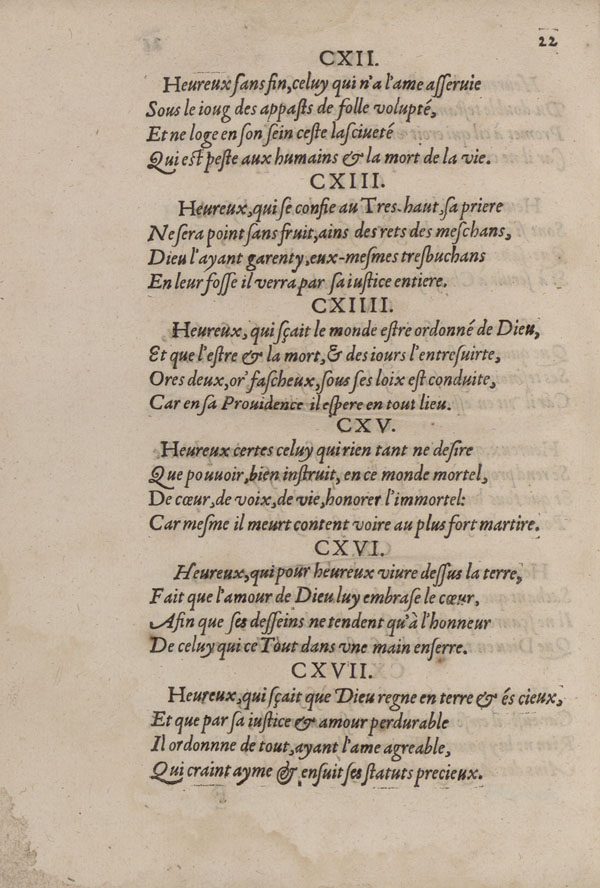 22
CXII.
Heureux sans fin, celuy qui n'a l'ame asseruie
Sous le ioug des appasts de folle volupté,
Et ne loge en son sein ceste lasciueté
Qui est peste aux humains & la mort de la vie.
CXIII.
Heureux, qui se confie au Tres-haut, sa priere
Ne sera point sans fruit, ains des rets des meschans,
Dieu l'ayant garenty, eux-mesmes tresbuchans
En leur fosse il verra par sa iustice entiere.
CXIIII.
Heureux, qui sçait le monde estre ordonné de Dieu,
Et que l'estre & la mort, & des iours l'entresuirte,
Ores deux, or' fascheux, sous ses loix est conduite,
Car en sa Prouidence il espere en tout lieu.
CXV.
Heureux certes celuy qui rien tant ne desire
Que pouuoir, bien instruit, en ce monde mortel,
De cœur, de voix, de vie, honorer l'immortel:
Car mesme il meurt content voire au plus fort martire.
CXVI.
Heureux, qui pour heureux viure dessus la terre,
Fait que l'amour de Dieu luy embrase le cœur,
Afin que ses desseins ne tendent qu'à l'honneur
De celuy qui ce Tout dans vne main enserre.
CXVII.
Heureux, qui sçait que Dieu regne en terre & és cieux,
Et que par sa iustice & amour perdurable
Il ordonnne de tout, ayant l'ame agreable,
Qui craint ayme & ensuit ses statuts precieux.